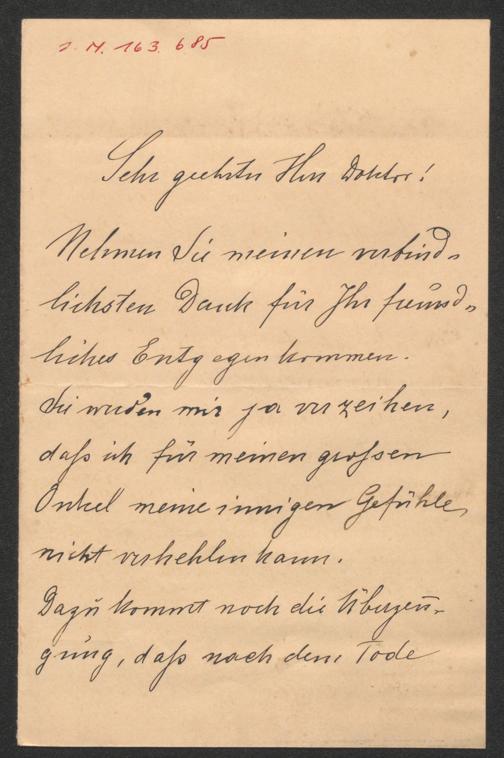 J. N. 163.685
Sehr geehrter Herr Doktor!
Nehmen Sie meinen verbind-
lichsten Dank für Ihr freund-
liches Entgegenkommen.
Sie werden mir ja verzeihen,
daß ich für meinen großen
Onkel meine innigen Gefühle
nicht verhehlen kann.
Dazu kommt noch die Überzeu-
gung, daß nach dem Tode